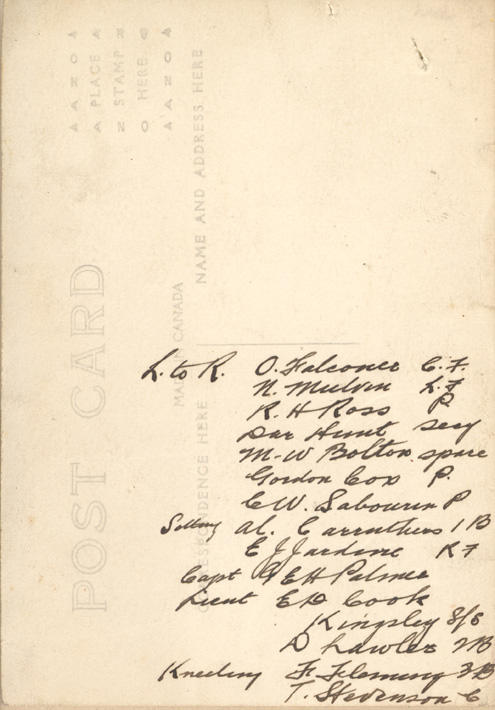 L. to R. O. Falconer C. F.
N. Mulvin L. F
R. H Ross P.
Dar Hunt secy
M-W Bolton. spare
Gordon Cox P.
C W. Sabourin P
Sitting Al. Carruthers 1 B
E J Jardine R F
Capt E H Palmer
Lieut E D Cook
Kingsley S/S
D Lawler 2B
Kneeling F. Fleming 3B
T. Stevenson C
POST CARD
CORRESPONDENCE HERE
MADE IN CANADA
NAME AND ADDRESS HERE
AZOA
PLACE
STAMP
HERE
AZOA